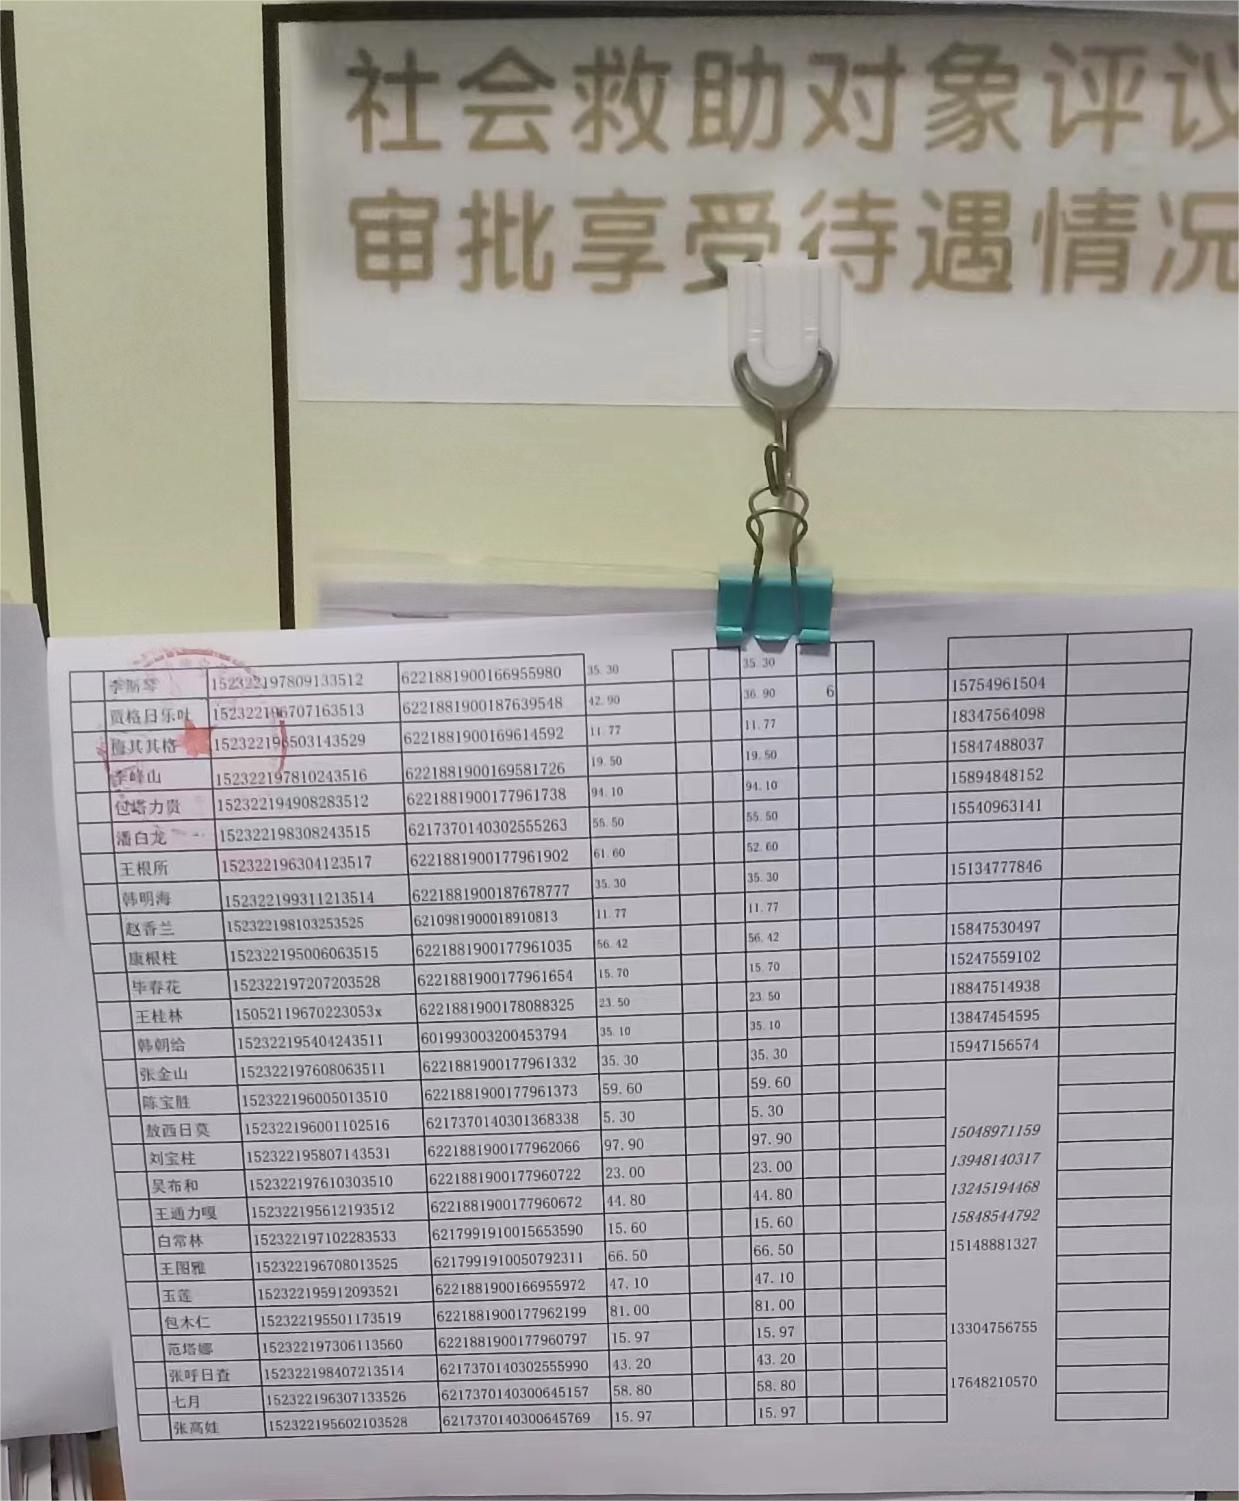 社会救助对象评议
审批享受待遇情况
李斯琴 152322197809133512 6221881900166955980 35.30 35.30
贾格日乐吐 152322196707163513 6221881900187639548 42.90 36.90 6 15754961504
梅其其格 152322196503143529 6221881900169614592 11.77 11.77 18347564098
李峰山 152322197810243516 6221881900169581726 19.50 19.50 15847488037
包塔力贵 152322194908283512 6221881900177961738 94.10 94.10 15894848152
潘白龙 152322198308243515 6217370140302555263 55.50 55.50 15540963141
王根所 152322196304123517 6221881900177961902 61.60 52.60
韩明海 152322199311213514 6221881900187678777 35.30 35.30 15134777846
赵香兰 152322198103253525 6210981900018910813 11.77 11.77
康根柱 152322195006063515 6221881900177961035 56.42 56.42 15847530497
毕春花 152322197207203528 6221881900177961654 15.70 15.70 15247559102
王桂林 15052119670223053x 6221881900178088325 23.50 23.50 18847514938
韩朝给 152322195404243511 601993003200453794 35.10 35.10 13847454595
张金山 152322197608063511 6221881900177961332 35.30 35.30 15947156574
陈宝胜 152322196005013510 6221881900177961373 59.60 59.60
敖西日莫 152322196001102516 6217370140301368338 5.30 5.30
刘宝柱 152322195807143531 6221881900177962066 97.90 97.90 15048971159
吴布和 152322197610303510 6221881900177960722 23.00 23.00 13948140317
王通力嘎 152322195612193512 6221881900177960672 44.80 44.80 13245194468
白常林 152322197102283533 6217991910015653590 15.60 15.60 15848544792
王图雅 152322196708013525 6217991910050792311 66.50 66.50 15148881327
玉莲 152322195912093521 6221881900166955972 47.10 47.10
包木仁 152322195501173519 6221881900177962199 81.00 81.00
范塔娜 152322197306113560 6221881900177960797 15.97 15.97 13304756755
张呼日查 152322198407213514 6217370140302555990 43.20 43.20
七月 152322196307133526 6217370140300645157 58.80 58.80 17648210570
张高娃 152322195602103528 6217370140300645769 15.97 15.97